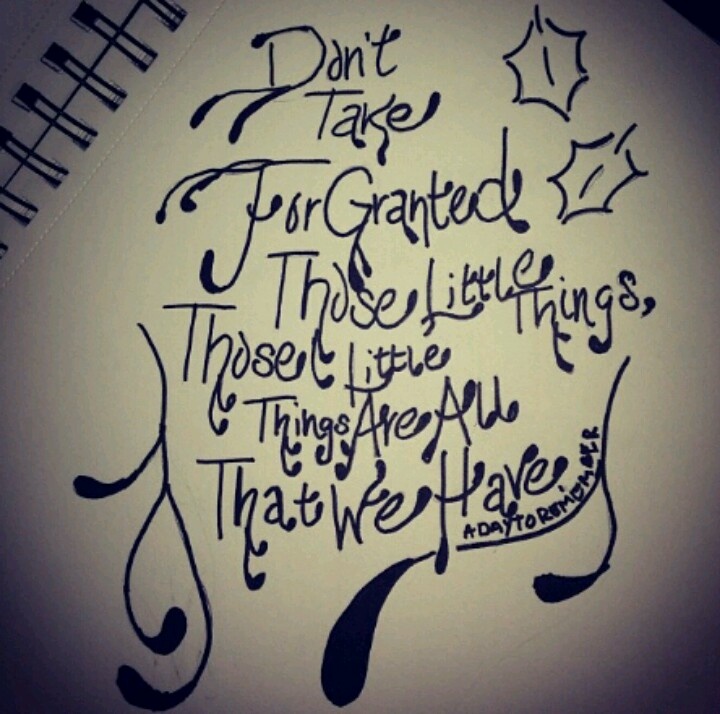 Don't
Take
For Granted
Those Little Things,
Those Little
Things Are All
That We Have
A DAY TO REMEMBER